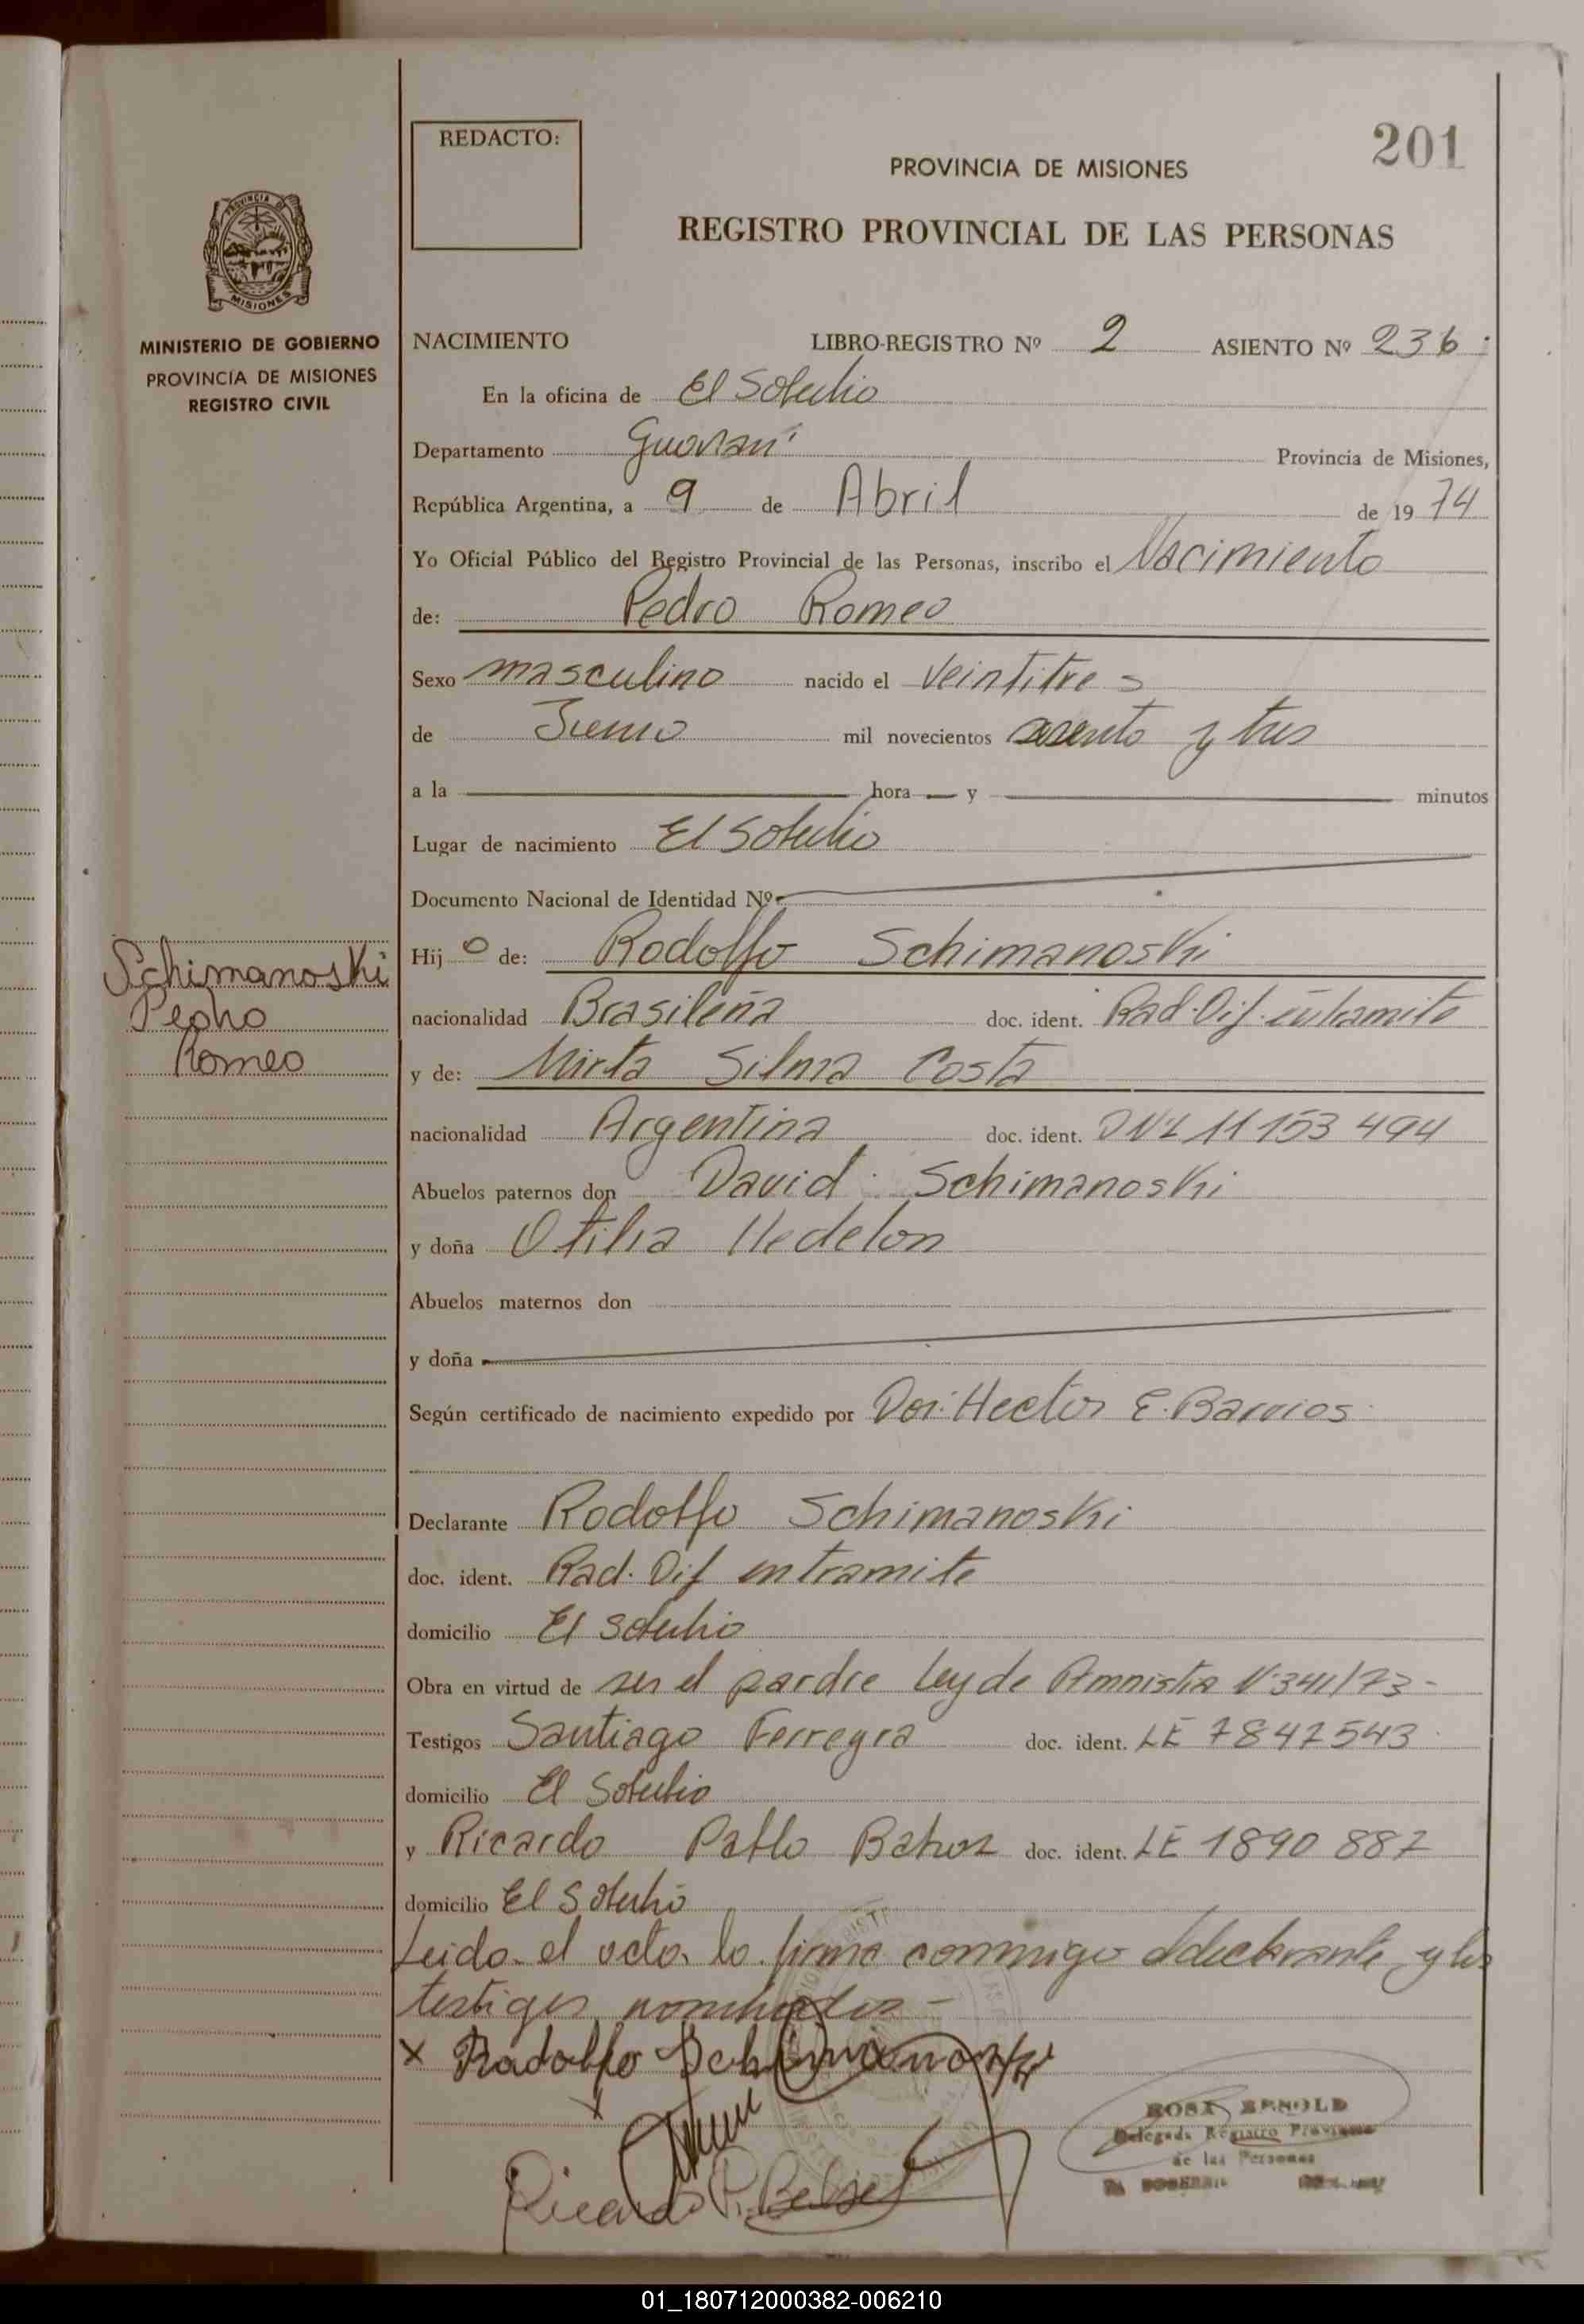 REDACTO:
201
PROVINCIA DE MISIONES
REGISTRO PROVINCIAL DE LAS PERSONAS
PROVINCIA DE
MISIONES
MINISTERIO DE GOBIERNO
PROVINCIA DE MISIONES
REGISTRO CIVIL
NACIMIENTO LIBRO-REGISTRO Nº 2 ASIENTO Nº 236
En la oficina de El Soberbio
Departamento Guaraní Provincia de Misiones,
República Argentina, a 9 de Abril de 1974
Yo Oficial Público del Registro Provincial de las Personas, inscribo el Nacimiento
de: Pedro Romeo
Sexo masculino nacido el Veintitres
de Junio mil novecientos y tres
a la hora y minutos
Lugar de nacimiento El Soberbio
Documento Nacional de Identidad Nº
Schimanoski
Pedro
Romeo
Hijo de: Rodolfo Schimanoski
nacionalidad Brasileña doc. ident. Rad. Dif. en tramite
y de: Mirta Silma Costa
nacionalidad Argentina doc. ident. DNI 11153494
Abuelos paternos don David Schimanoski
y doña Otilia Hedelon
Abuelos maternos don
y doña
Según certificado de nacimiento expedido por Hector E. Barrios
Declarante Rodolfo Schimanoski
doc. ident. Rad. Dif en tramite
domicilio El Soberbio
Obra en virtud de ser el pardre Ley de Amnistia N·341/73-
Testigos Santiago Ferreyra doc. ident. LE 7847543
domicilio El Soberbio
y Ricardo Pablo doc. ident. LE 1890887
domicilio El Soberbio
Leida el acta la firma conmigo el declarante y los
testigos nombrados-
x Radolfo Schimanoski
Ricardo P.
ROSA
Delegada Registro Provincial
de las Personas
01_180712000382-006210